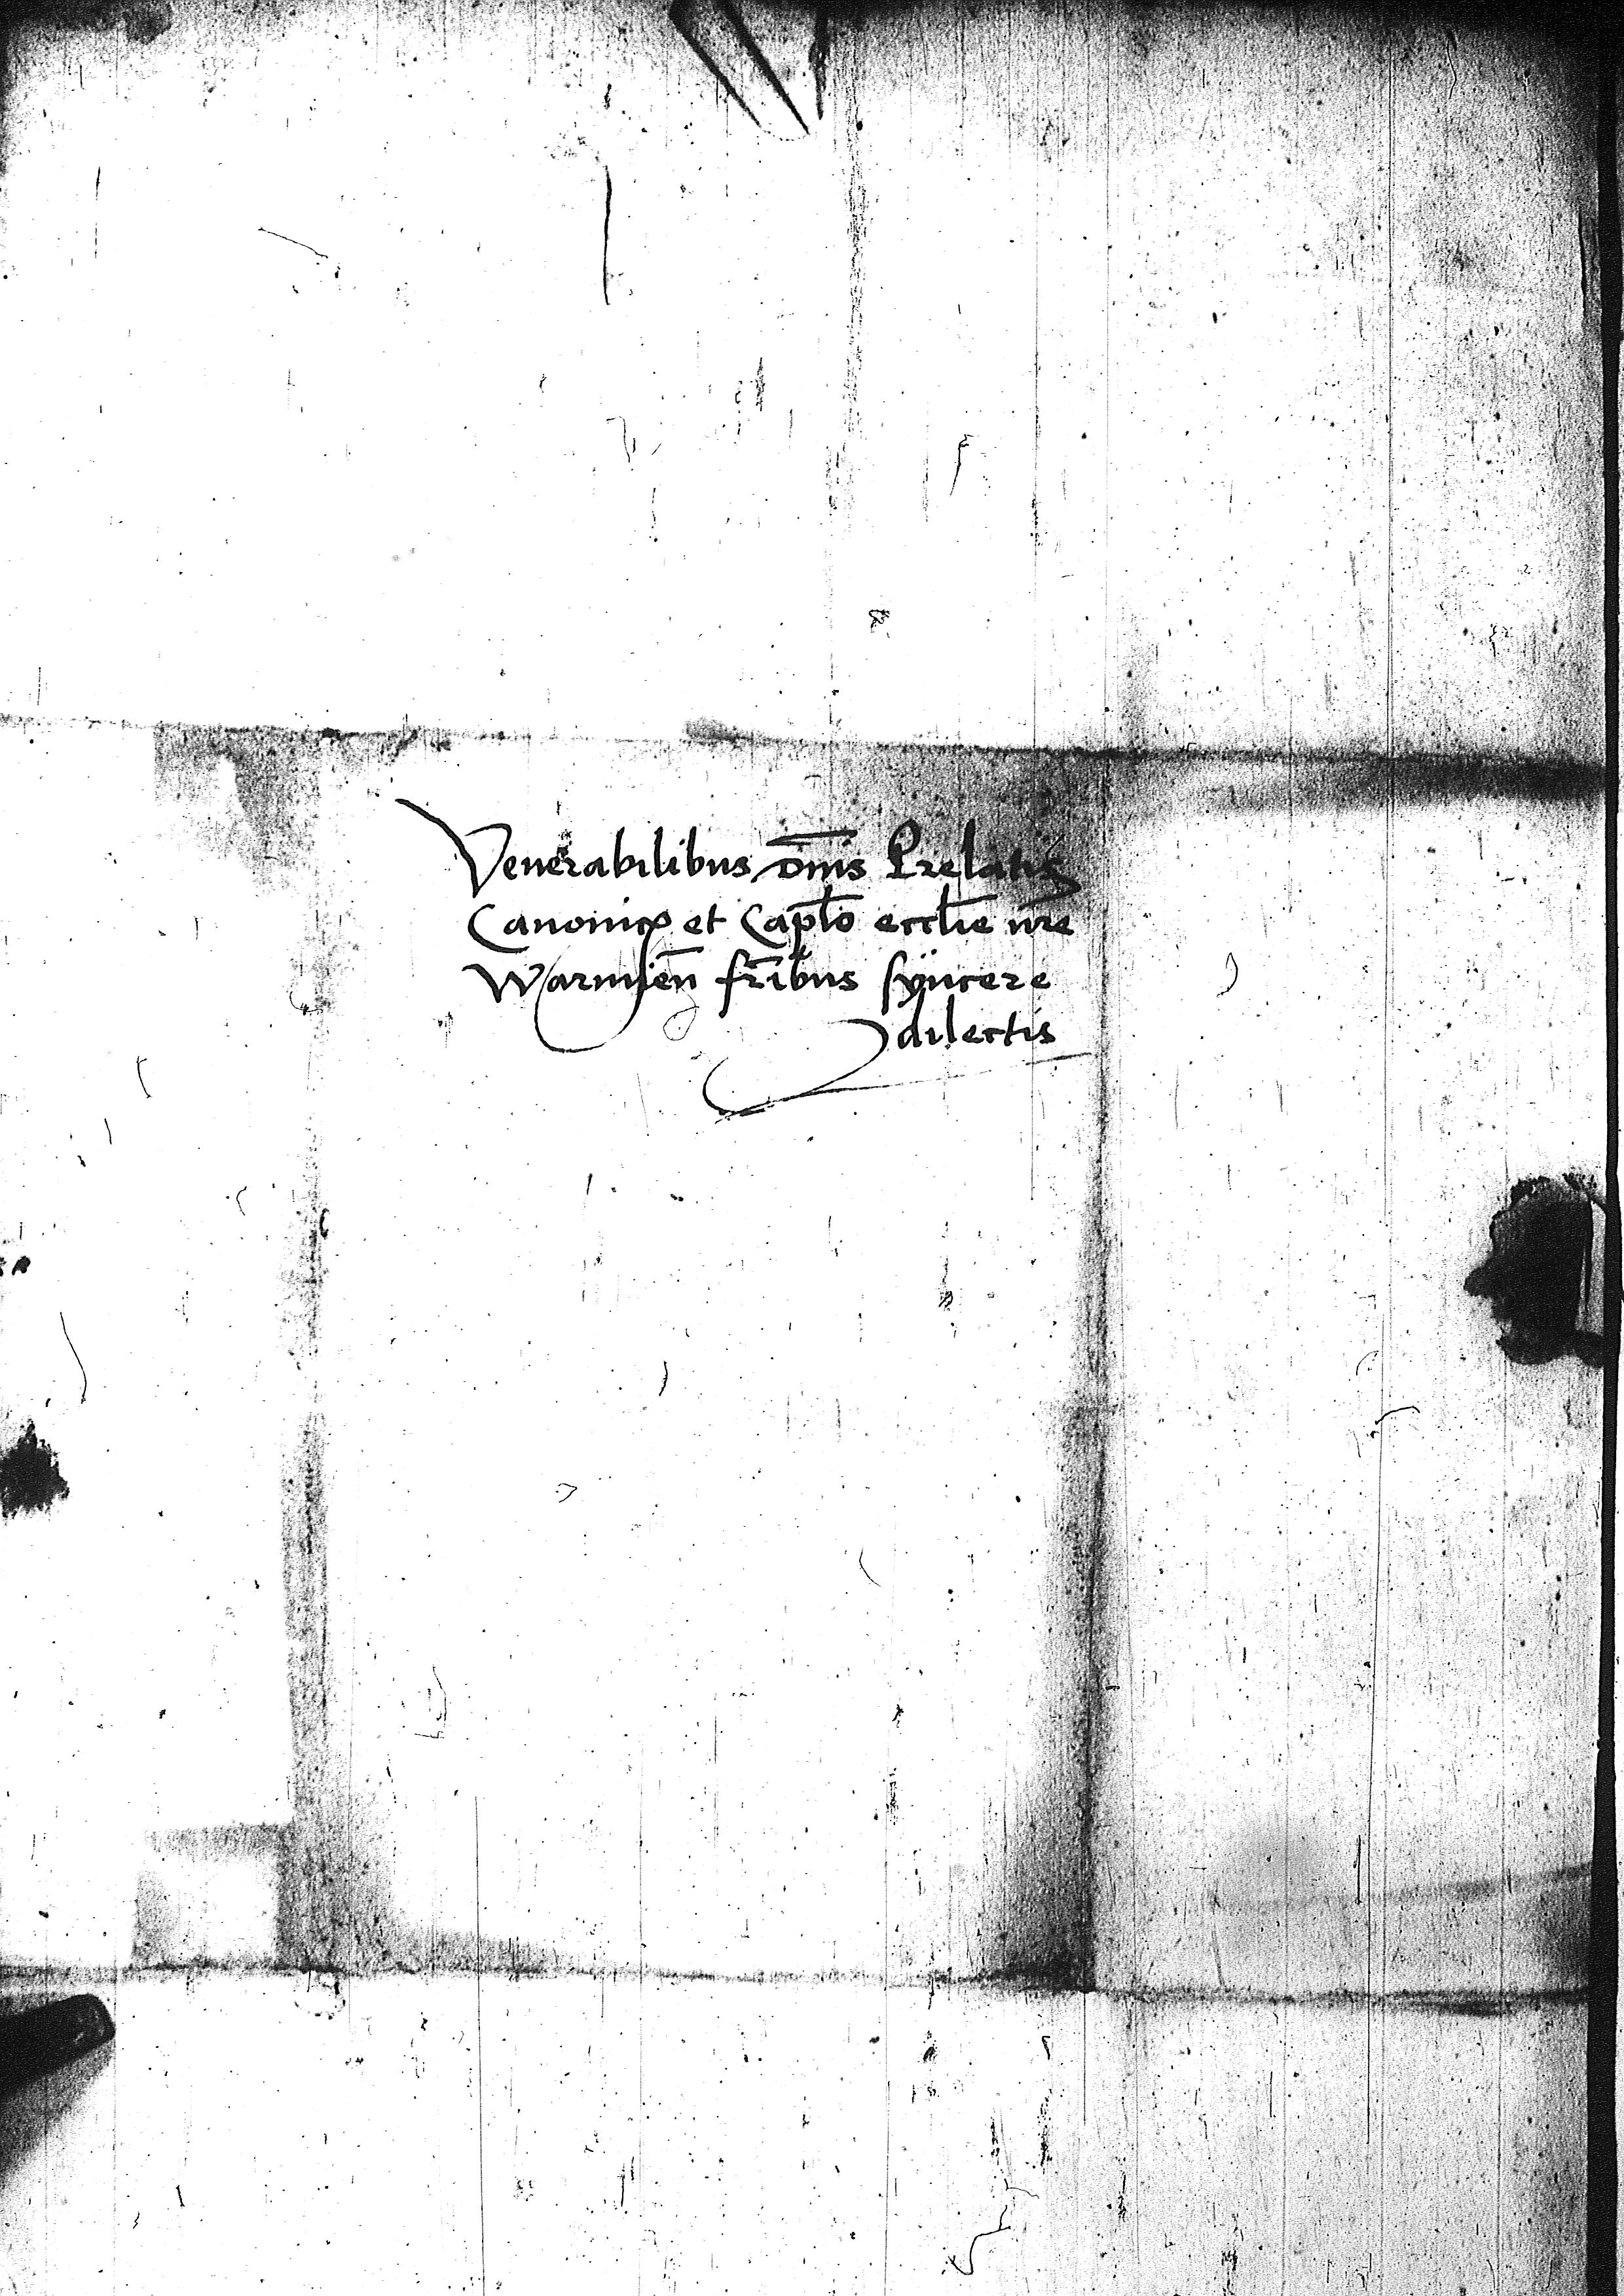 Venerabilibus dn̄is Prelatis
Canonicꝭ et Capl̄o eccl̄ie nr̄e
Warmien̄ fr̄ibus sÿncere
dilectis